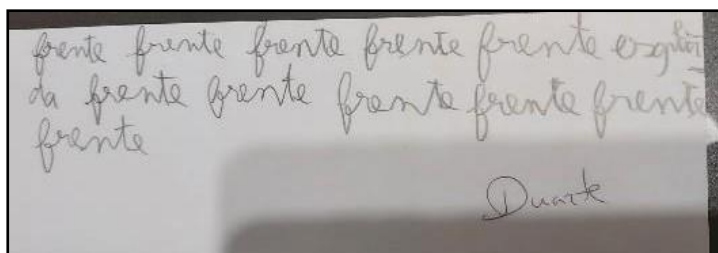 frente frente frente frente frente
da frente frente frente frente frente
frente
Duarte